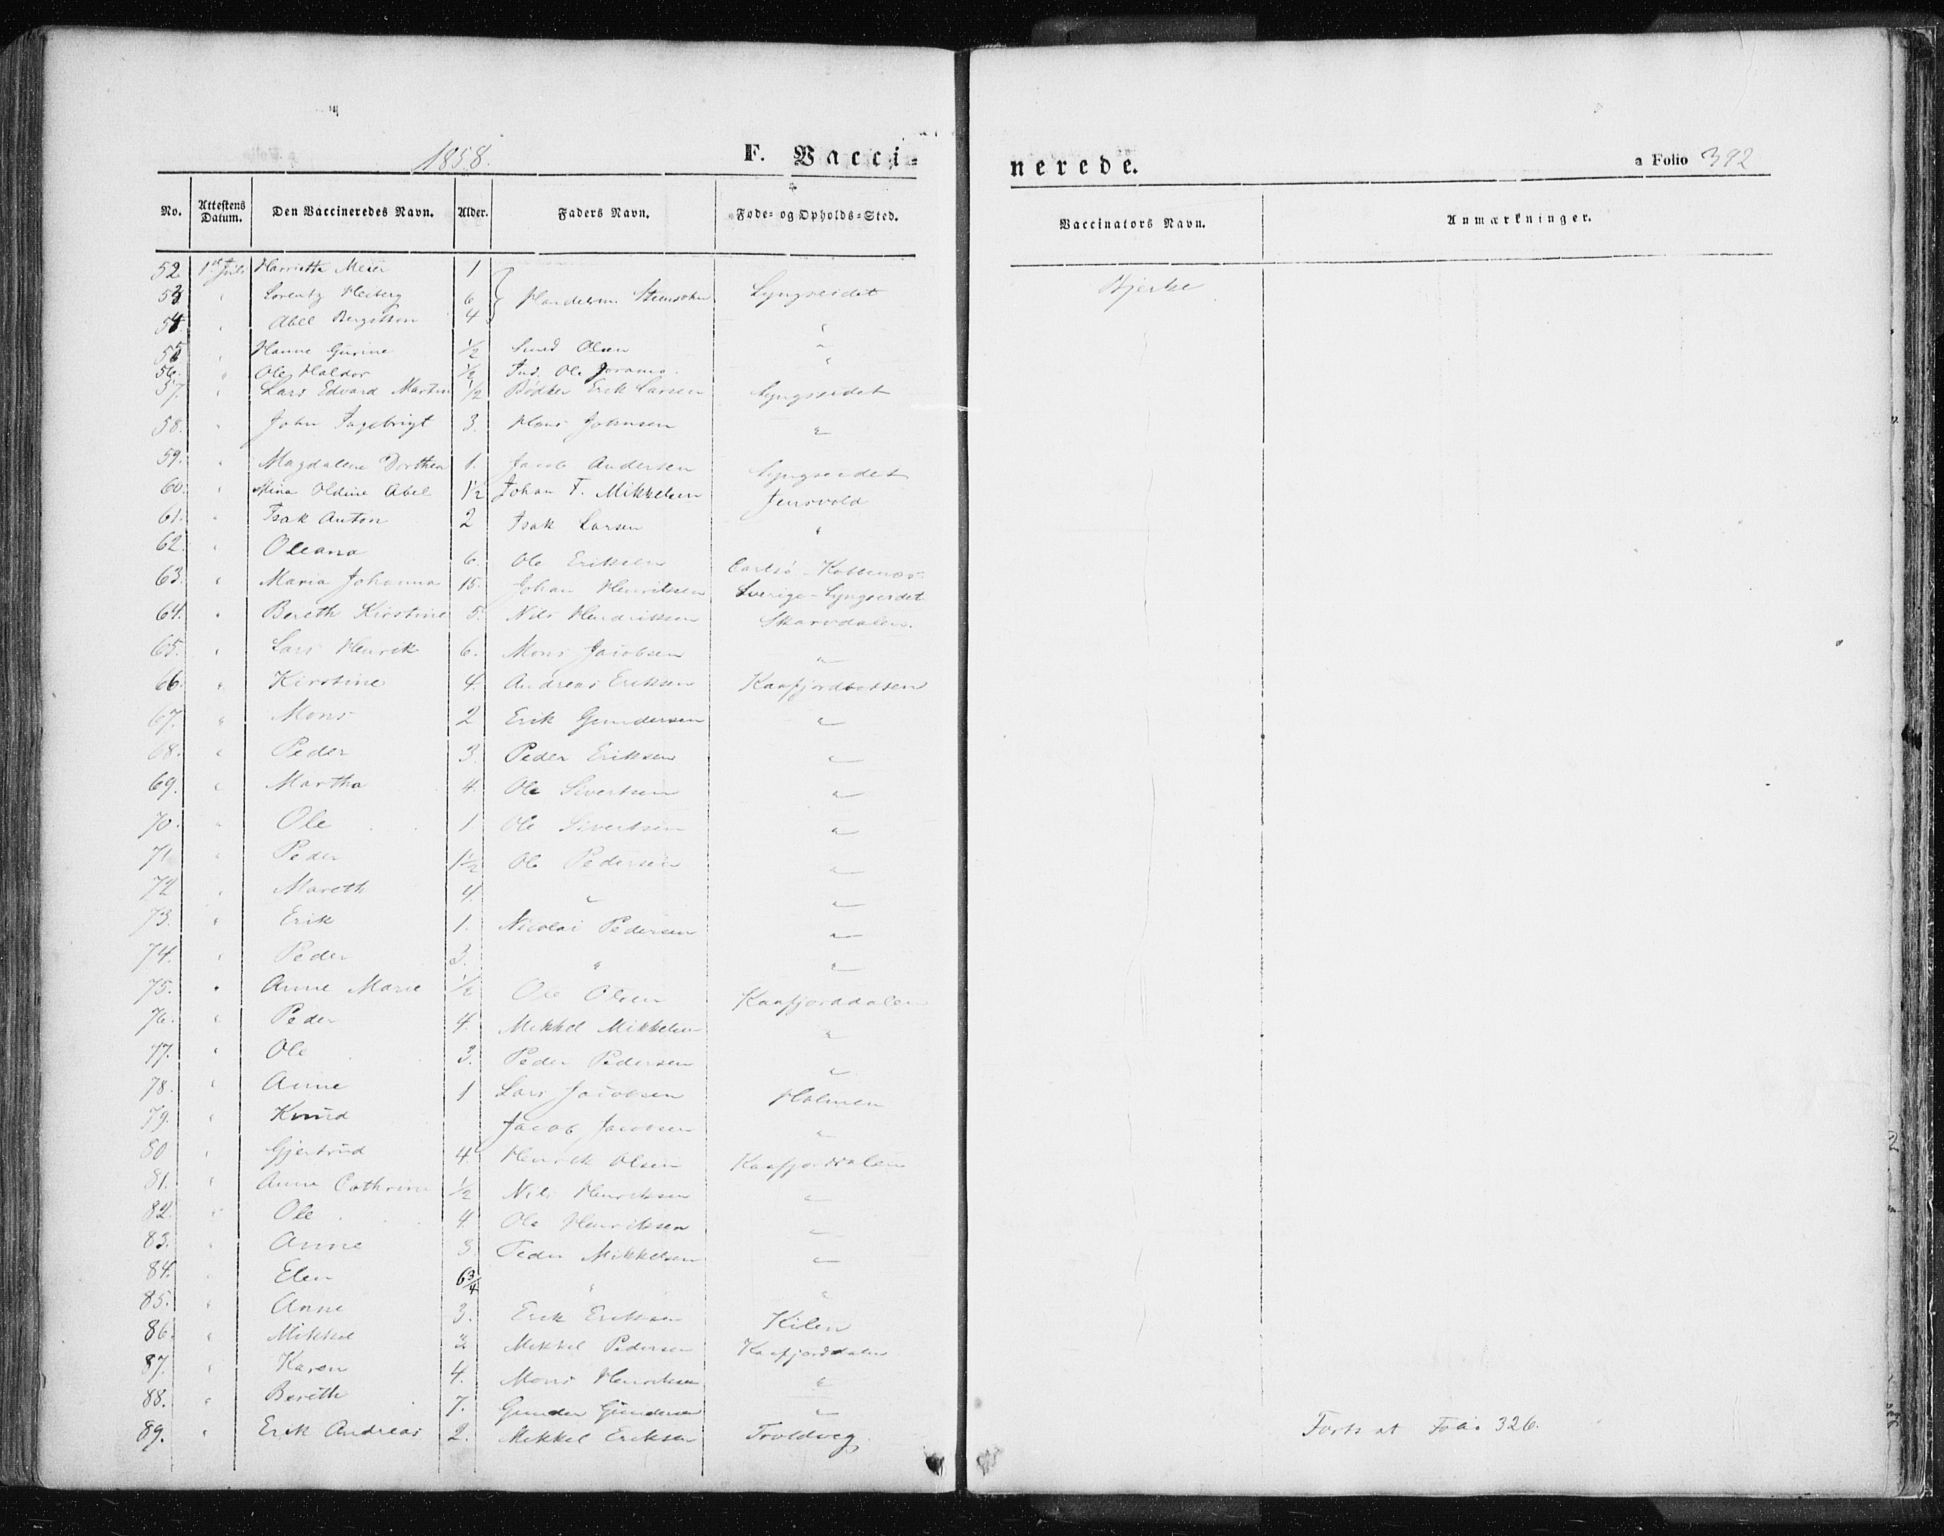 1858. F. Vacci-
nerede. a Folio 392
No. Attestens Datum. Den Vaccineredes Navn. Alder. Faders Navn. Føde- og Opholds-Sted.
Vaccinators Navn. Anmærkninger.
52. 1st Juli Harriette Meier 1
53 " Lorentz Heiberg 6 Handelsm. Lyngseidet Bjerke
54. " Abel 4 "
55 " Hanne Gurine 1/2 Olsen "
56. " Ole Haldor 1/2 Ole "
57. " Lars Edvard Martin 1/2 Bødker Erik Larsen Lyngseidet
58. " John Ingebrigt 3. Hans Johnsen "
59. " Magdalene Dorthea 1. Jacob Andersen Lyngseidet
60. " Mina Oldine Abel 1 1/2 Johan F. Mikkelsen Jensvold
61. " Isak Anton 2 Isak Larsen "
62. " Oleana 6. Ole Eriksen
63. " Maria Johanna 15. Johan Henriksen Sverige - Lyngseidet
64. " Bereth Kirstine 5. Nils Hendriksen Skarvdalen.
65. " Lars Henrik 6. Mons Jacobsen "
66. " Kirstine 4. Andreas Eriksen Kaafjordbotten
67. " Mons 2 Erik Gundersen "
68. " Peder 3. Peder Eriksen "
69. " Martha 4. Ole Sivertsen "
70. " Ole 1 Ole Sivertsen "
71. " Peder 1 1/2 Ole Pedersen "
72 " Mareth 4. " "
73. " Erik 1. Nicolai Pedersen "
74. " Peder 3. " "
75. " Anne Marie 1/2 Ole Olsen Kaafjorddalen
76. " Peder 4. Mikkel Mikkelsen "
77. " Ole 3. Peder Pedersen "
78. " Anne 1 Lars Jacobsen Holmen
79. " Knud Jacob Jacobsen "
80 " Gjertrud 4. Henrik Olsen Kaafjorddalen
81. " Anne Cathrine 1/2 Nils Henriksen "
82. " Ole 4. Ole Henriksen "
83. " Anne 3. Peder Mikkelsen "
84. " Elen 6 3/4 " "
85. " Anne 3. Erik Eriksen Kilen
86. " Mikkel 2 Mikkel Pedersen Kaafjorddalen
87. " Karen 4. Mons Henriksen "
88. " Bereth 7. Gunder Gundersen "
89. " Erik Andreas 2. Mikkel Eriksen Troldveg
Forts at Folio 326.